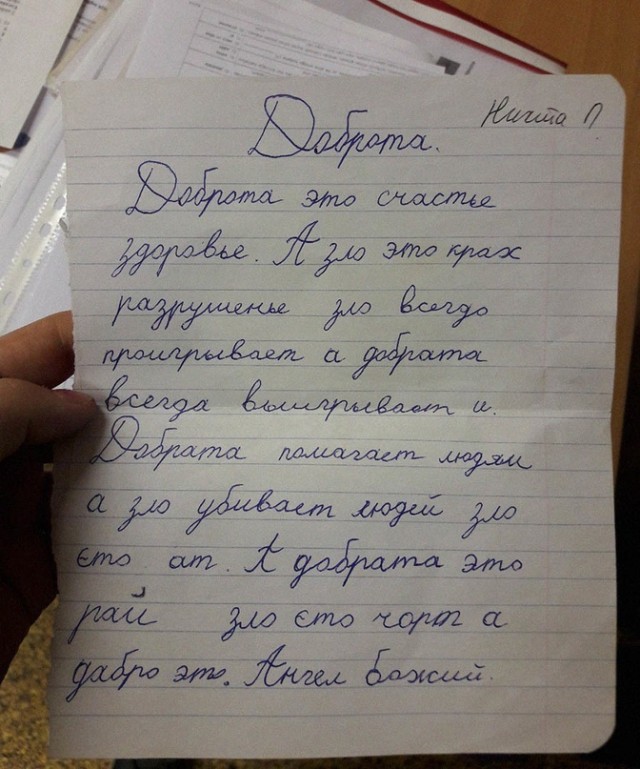 Ничта П
Доброта.
Доброта это счастье
здоровье. А зло это крах
разрушенье зло всегдо
проигрывает а добрата
всегда выигрывает и.
Добрата помагает людям
а зло убивает людей зло
єто ат. А добрата это
рай зло єто чорт а
дабро это. Ангел Божий.